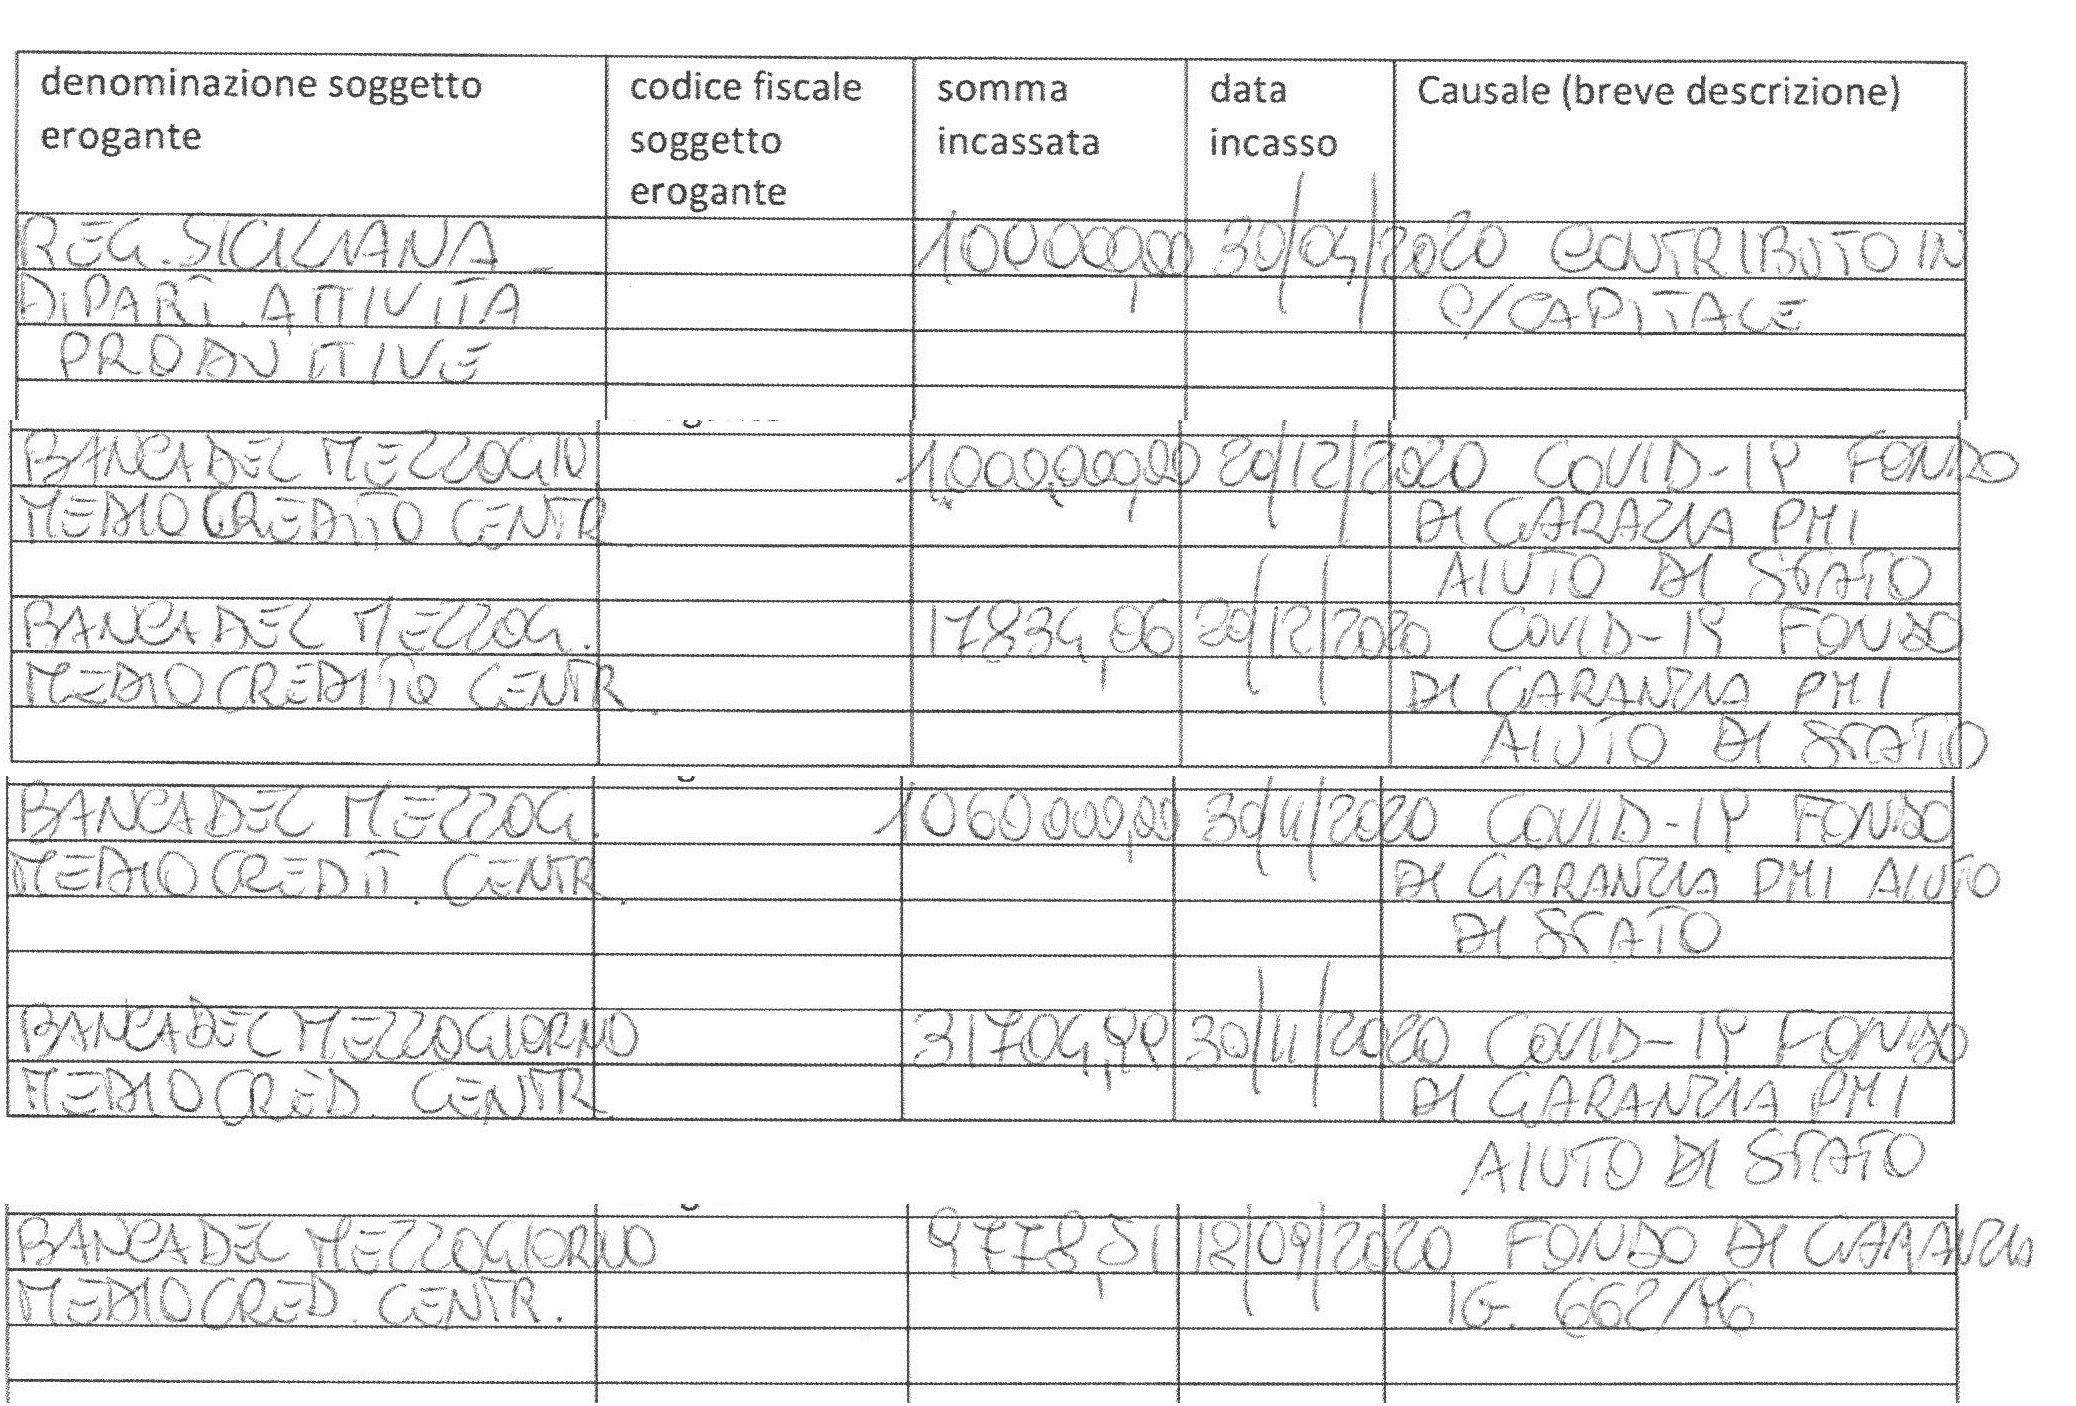 denominazione soggetto erogante codice fiscale soggetto erogante somma incassata data incasso Causale (breve descrizione)
REG. SICILIANA 100000,00 30/04/2020 CONTRIBUTO IN
DIPART. ATTIVITA C/CAPITALE
PRODUTTIVE
BANCA DEL MEZZOGIO 1.000.000,00 20/12/2020 COVID-19 FONDO
MEDIOCREDITO CENTR DI GARAZIA PMI
AIUTO DI STATO
BANCA DEL MEZZOG. 17834,06 20/12/2020 COVID-19 FONDO
MEDIOCREDITO CENTR. DI GARANZIA PMI
AIUTO DI STATO
BANCA DEL MEZZOG. 1060000,00 30/11/2020 COVID-19 FONDO
MEDIOCREDIT. CENTR. DI GARANZIA PMI AIUTO
DI STATO
BANCA DEL MEZZOGIORNO 31704,99 30/11/2020 COVID-19 FONDO
MEDIOCRED. CENTR DI GARANZIA PMI
AIUTO DI STATO
BANCA DEL MEZZOGIORNO 9778,51 18/09/2020 FONDO DI GARANZIA
MEDIOCRED. CENTR. 662/96